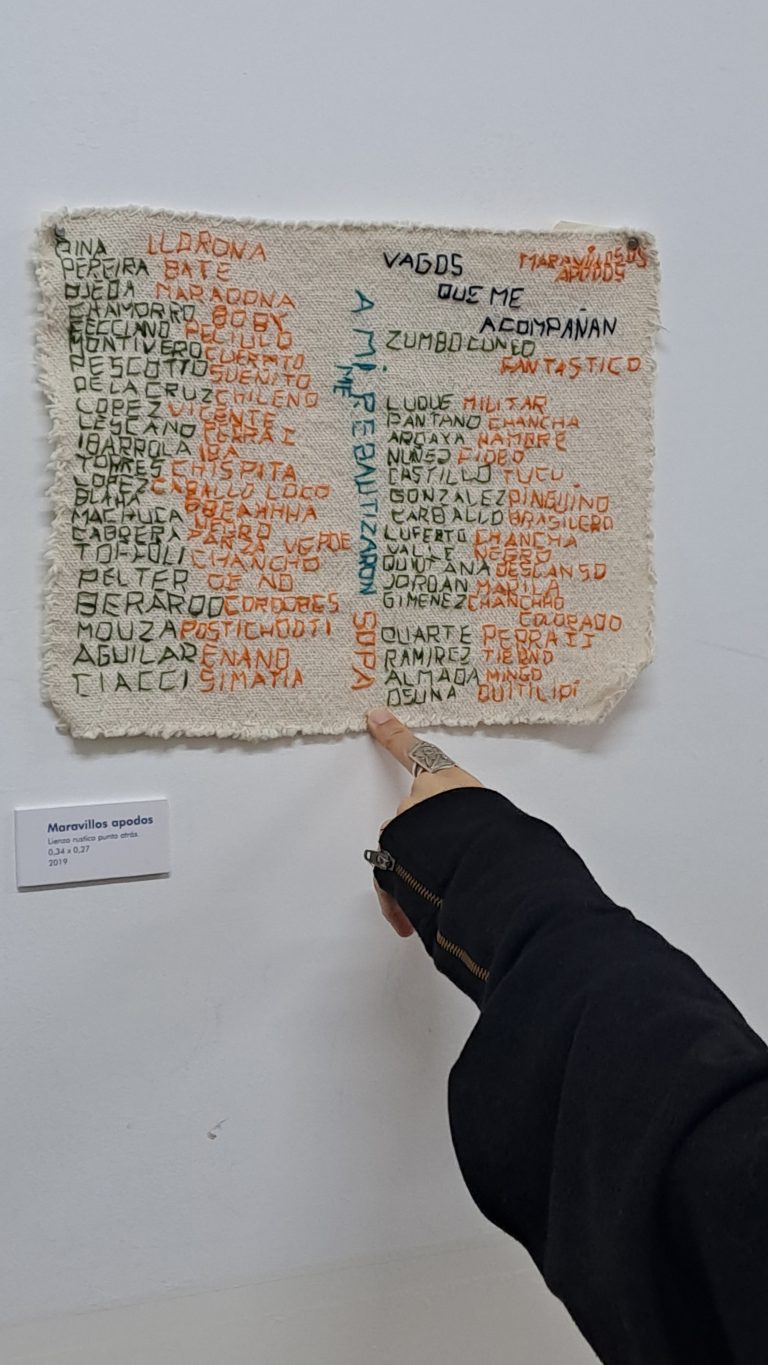 PINA LLORONA
PEREIRA BATE
OJEDA MARADONA
CHAMORRO BOBY
FECCIANO PELIULO
MONTIVERO CUERPITO
PESCOTTO SUEÑITO
DE LA CRUZ CHILENO
LOPEZ VICENTE
LESCANO
IBARROLA IBA
TORRES CHISPITA
LOPEZ CABALLO LOCO
MACHUCA NEGRO
CABRERA PANZA VERDE
TOFFOLI CHANCHO
PELTER DE NO
BERARDO CORDOBES
MOUZA POSTICHOOTI
AGUILAR ENANO
CIACCI SIMATIA
A MI ME REBAUTIZARON SOPA
VAGOS
QUE ME
ACOMPAÑAN
MARAVILLOSOS
APODOS
ZUMBO CUNEO
FANTASTICO
LUQUE MILITAR
PANTANO CHANCHA
ARDAYA HAMBRE
NUÑEZ FIDEO
CASTILLO TUCU
GONZALEZ PINGUINO
CARBALLO BRASILERO
LUFERTO CHANCHA
VALLE NEGRO
QUINTANA DESCANSO
JORDAN MADILA
GIMENEZ CHANCHHO
COLORADO
DUARTE
RAMIREZ TIERNO
ALMADA MINGO
OSUNA QUITILIPI
Maravillos apodos
Lienzo rustico punto atrás.
0,34 x 0,27
2019